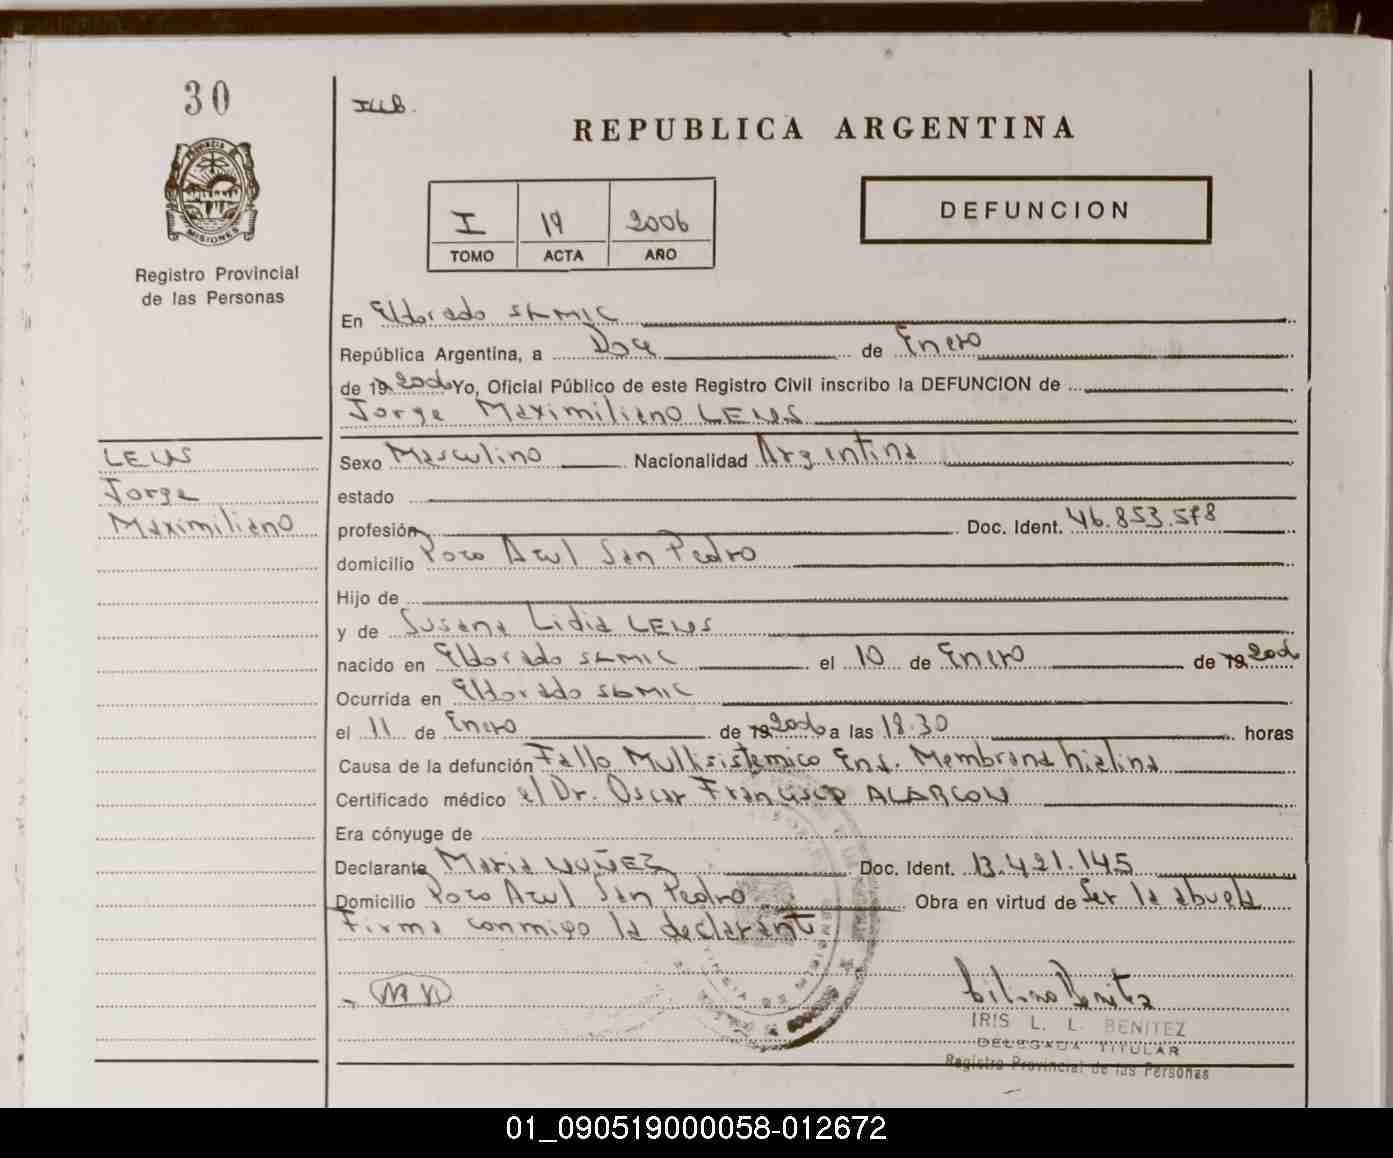 30
PROVINCIA DE
MISIONES
Registro Provincial
de las Personas
REPUBLICA ARGENTINA
I 19 2006
TOMO ACTA AÑO
DEFUNCION
En Eldorado SAMIC
República Argentina, a Doce de Enero
de 19 2006 Yo, Oficial Público de este Registro Civil inscribo la DEFUNCION de
Jorge Maximiliano LEUS
LEUS
Jorge
Maximiliano
Sexo Masculino Nacionalidad Argentina
estado
profesión Doc. Ident. 46.853.578
domicilio Pozo Azul San Pedro
Hijo de
y de Susana Lidia LEUS
nacido en Eldorado SAMIC el 10 de Enero de 19 2006
Ocurrida en Eldorado SAMIC
el 11 de Enero de 19 2006 a las 18.30 horas
Causa de la defunción Fallo Multisistemico Enf. Membrana hialina
Certificado médico el Dr. Oscar Francisco ALARCON
Era cónyuge de
Declarante Maria NUÑEZ Doc. Ident. 13.421.145
Domicilio Pozo Azul San Pedro Obra en virtud de Ser la abuela
Firma conmigo la declarante
M N
IRIS L. L. BENITEZ
DELEGADA TITULAR
Registro Provincial de las Personas
01_090519000058-012672